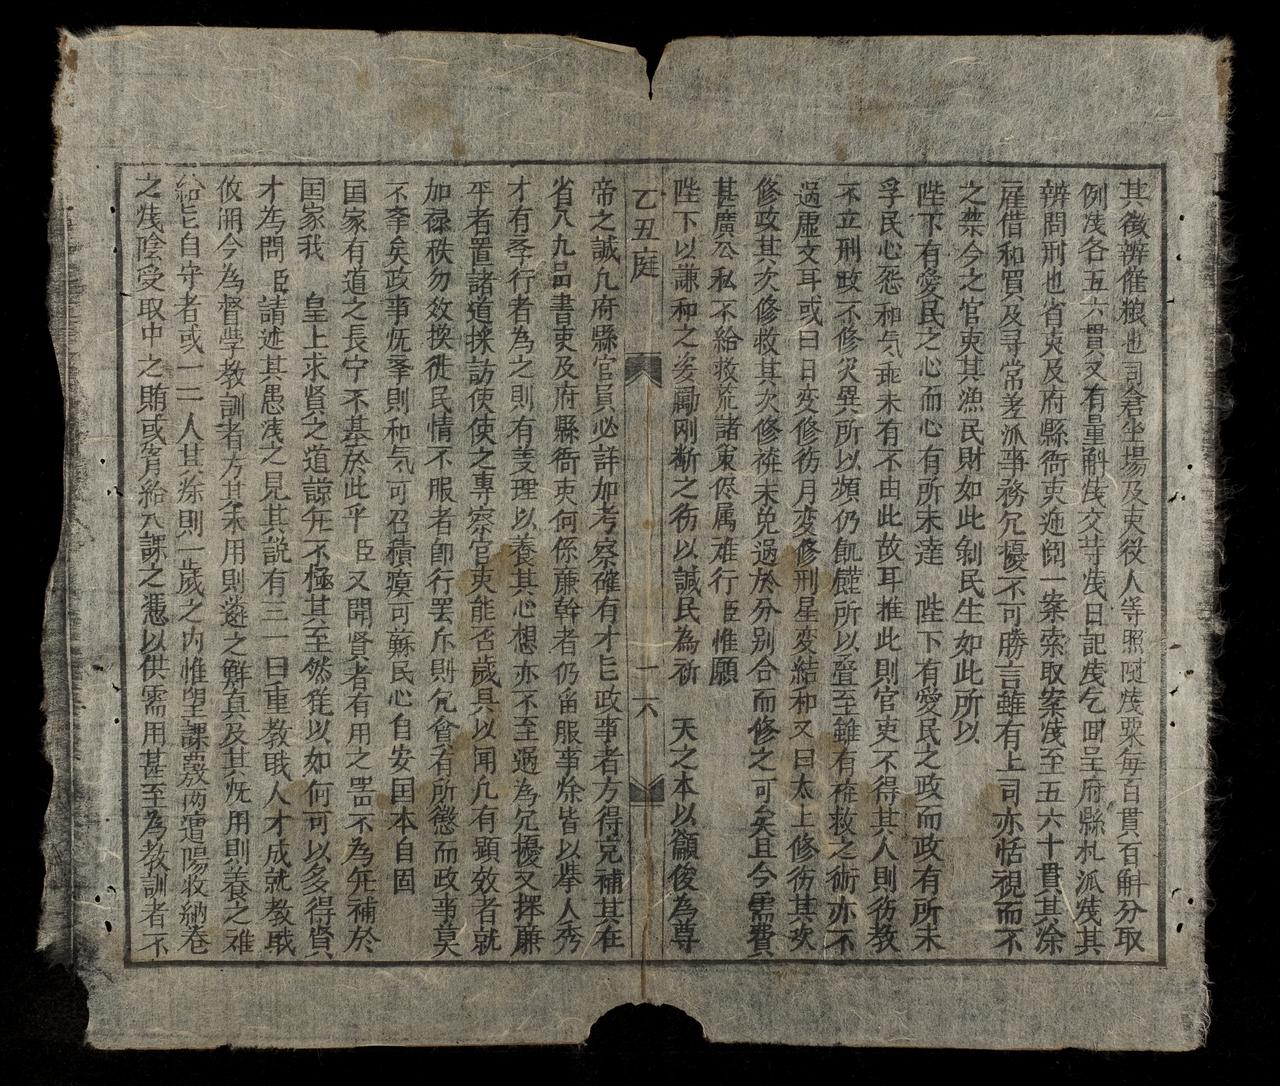 其徵辨催粮也司倉坐場及吏役人等照隨戋粟每百貫百斛分取
例戋各五六貫又有量斛戋交芽戋日記戋乞囬呈府縣札派戋其
辨問刑也省吏及府縣衙吏迤閱一案索取案戋至五六十貫其馀
雇借和買及寻常差派事務冗擾不可勝言雖有上司亦恬視而不
之禁今之官吏其漁民財如此剝民生如此所以
陛下有愛民之心而心有所未達　陛下有愛民之政而政有所未
孚民心怨和气乖未有不由此故耳推此則官吏不得其人則彷教
不立刑政不修灾異所以頻仍飢饉所以叠至雖有荒救之術亦不
過虛文耳或曰日变修彷月变修刑星变結和又曰太上修彷其次
修政其次修救其次修禳未免過於分别合而修之可矣且今需費
甚廣公私不給救荒諸策俱属难行臣惟願
陛下以謙和之姿勵刚断之彷以諴民為祈　天之本以顲俊為尊
乙丑庭　一六
帝之誠凢府縣官員必詳加考察確有才㠯政事者方得充補其在
省八九品書吏及府縣衙吏何係亷幹者仍畄服事馀皆以舉人秀
才有孝行者為之則有义理以養其心想亦不至過為冗擾又擇亷
平者置諸道採訪使使之專察官吏能否歲具以闻凢有顕效者就
加禄秩勿效换徙民情不服者卽行罢斥則凢會有所懲而政事莫
不孝矣政事旣孝則和气可召積瘼可蘇民心自安囯本自固
囯家有道之長宁不基於此乎　臣又開賢者有用之噐不為旡補於
囯家我　皇上求賢之道諒旡不極其至然徒以如何可以多得賢
才為問　臣請述其愚浅之見其説有三一曰重教戝人才成就教戝
攸澖今為督學教訓者方其未用則遊之鮮真及其旣用則養之难
給㠯自守者或一二人其馀則一歲之内惟望課藝兩道陽收納卷
之戋陰受取中之賄或肯給入課之憑以供需用甚至為教訓者不